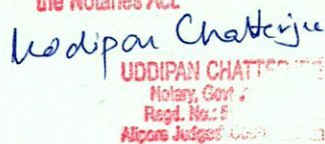 the Notaries Act
Uddipan Chatterjee
UDDIPAN CHATT
Notary, Govt
Regd. No.: 5
Alipore Judges